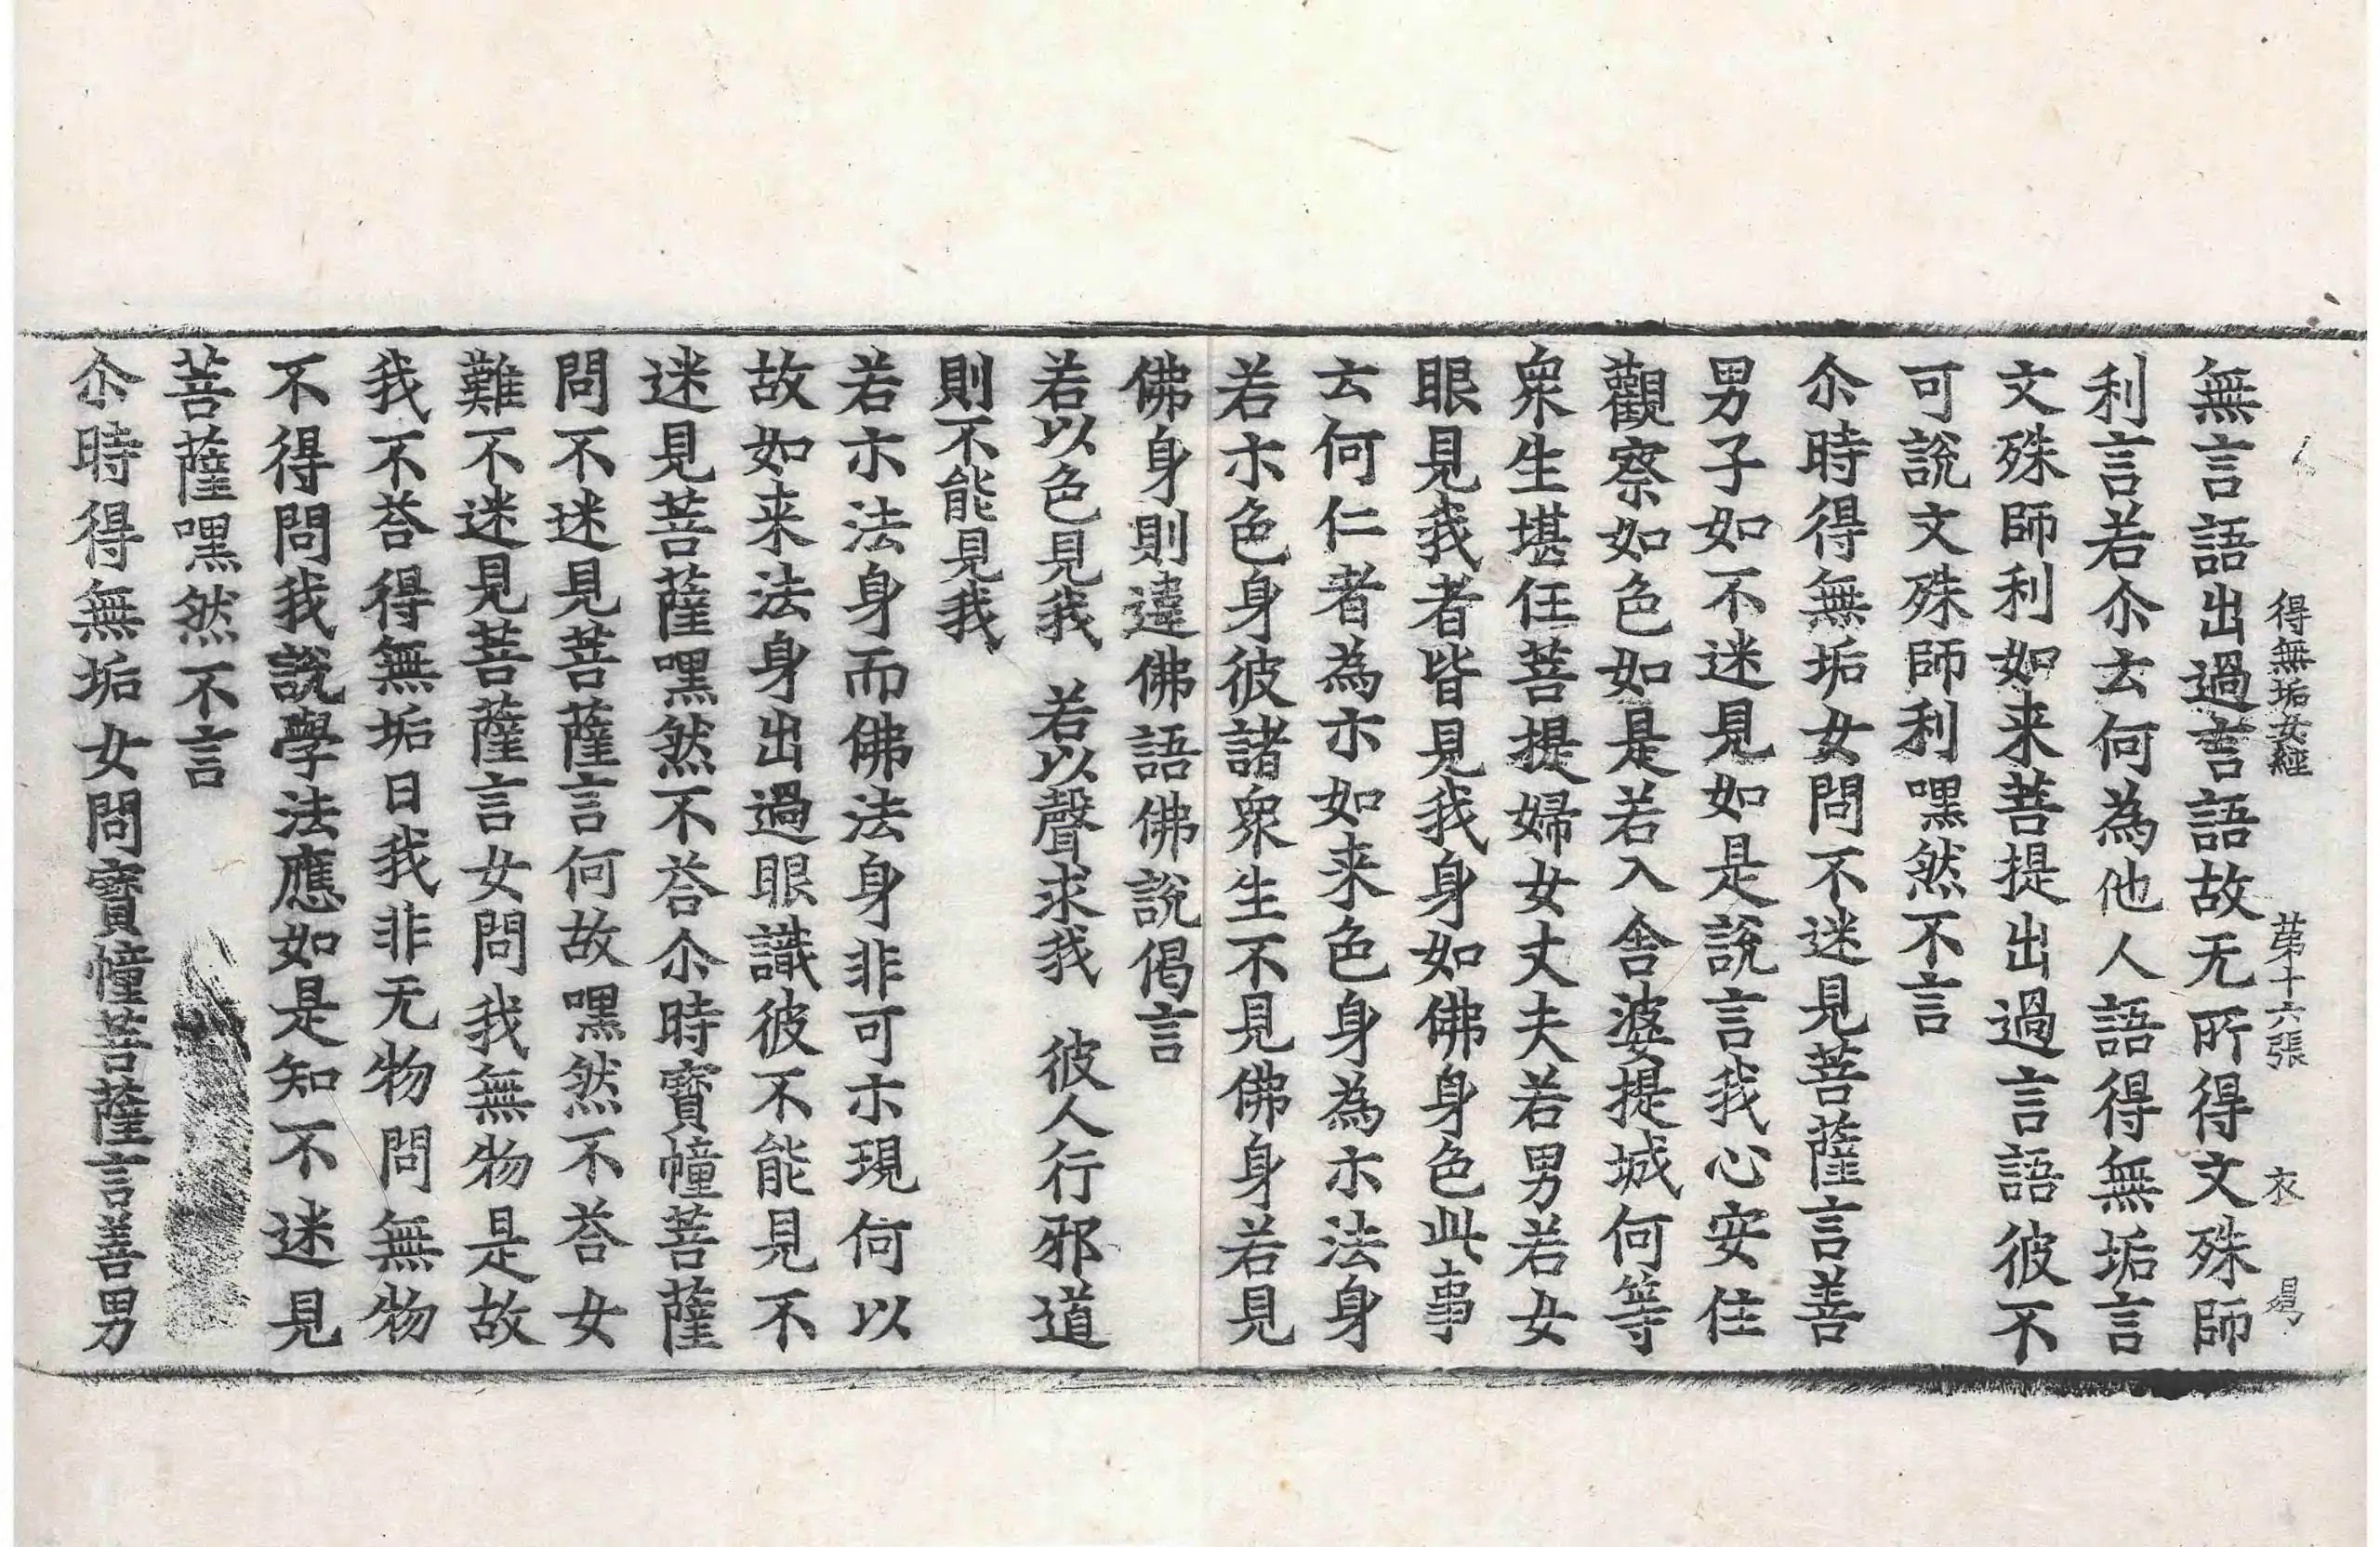 得無垢女經 第十六張 衣
無言語出過言語故无所得文殊師
利言若尒去何為他人語得無垢言
文殊師利如来菩提出過言語彼不
可說文殊師利嘿然不言
尒時得無垢女問不迷見菩薩言善
男子如不迷見如是說言我心安住
觀察如色如是若入舍婆提城何等
衆生堪任菩提婦女丈夫若男若女
眼見我者皆見我身如佛身色此事
去何仁者為示如来色身為示法身
若示色身彼諸衆生不見佛身若見
佛身則違佛語佛說偈言
若以色見我 若以聲求我 彼人行邪道
則不能見我
若示法身而佛法身非可示現何以
故如来法身出過眼識彼不能見不
迷見菩薩嘿然不荅尒時寶幢菩薩
問不迷見菩薩言何故嘿然不荅女
難不迷見菩薩言女問我無物是故
我不荅得無垢曰我非无物問無物
不得問我說學法應如是知不迷見
菩薩嘿然不言
尒時得無垢女問寶幢菩薩言善男